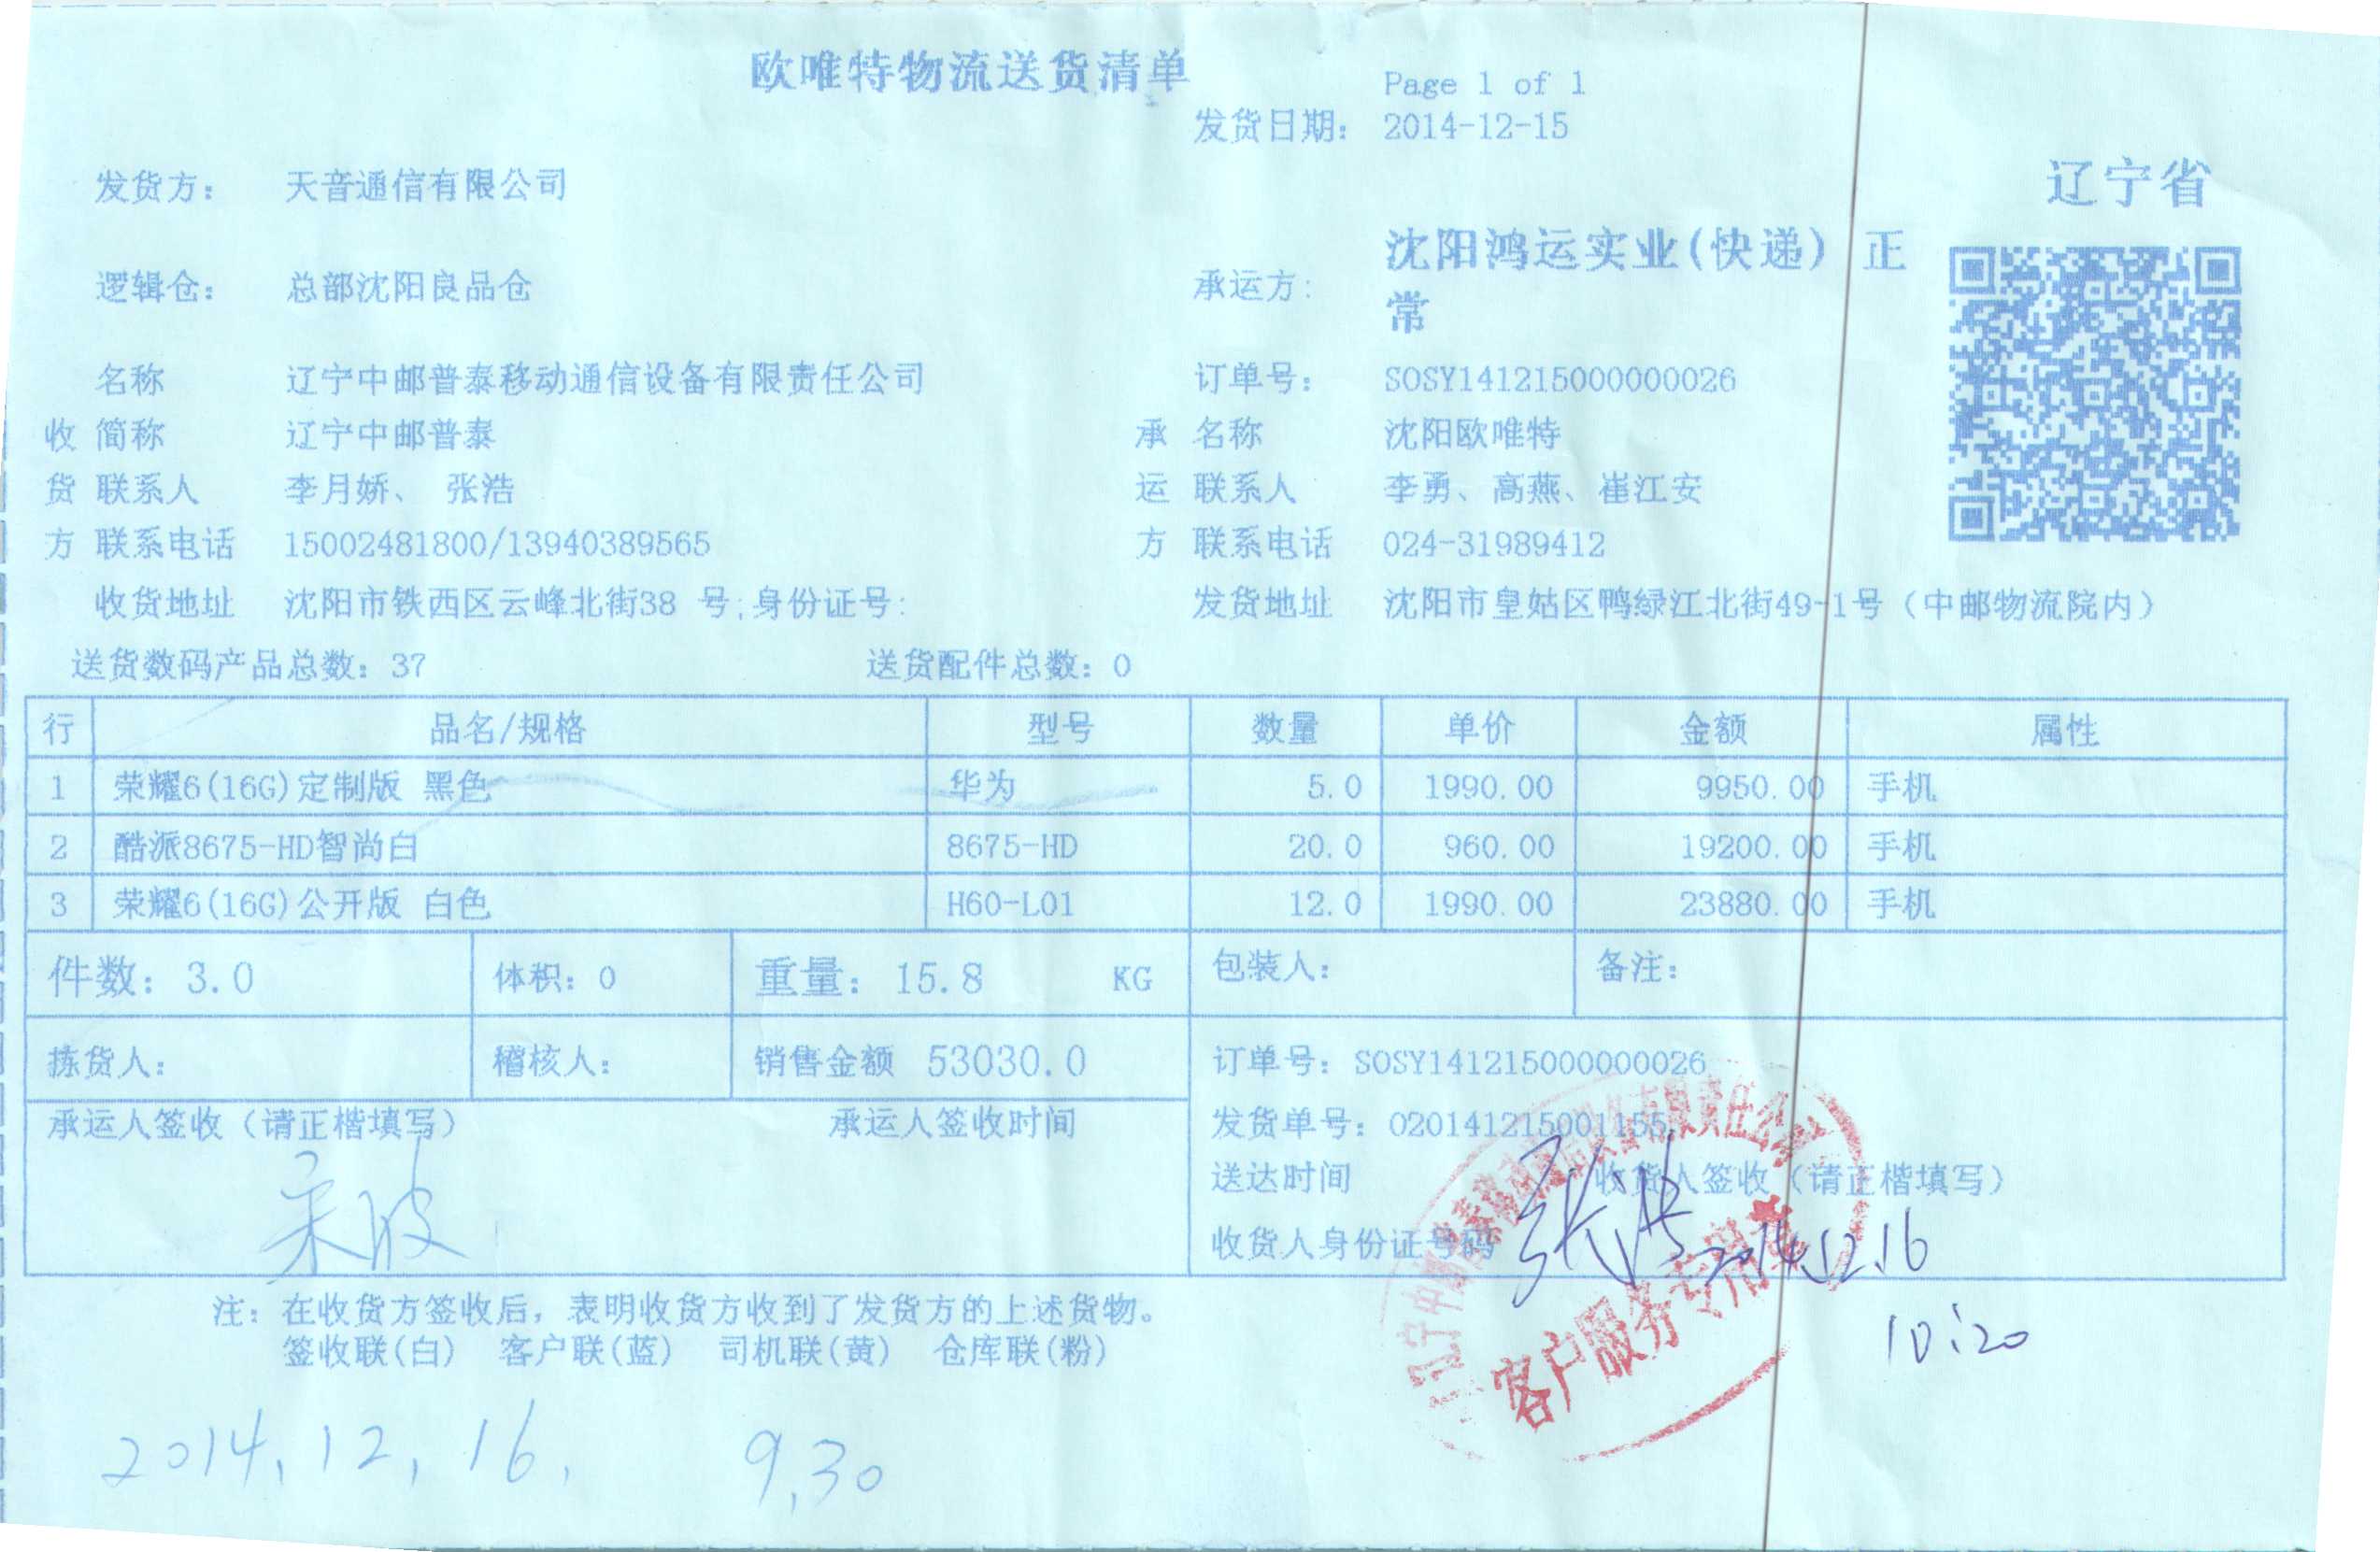 欧唯特物流送货清单
Page 1 of 1
发货日期： 2014-12-15
辽宁省
发货方： 天音通信有限公司
逻辑仓： 总部沈阳良品仓 承运方： 沈阳鸿运实业(快递) 正
常
名称 辽宁中邮普泰移动通信设备有限责任公司 订单号： SOSY141215000000026
收 简称 辽宁中邮普泰 承 名称 沈阳欧唯特
货 联系人 李月娇、 张浩 运 联系人 李勇、高燕、崔江安
方 联系电话 15002481800/13940389565 方 联系电话 024-31989412
收货地址 沈阳市铁西区云峰北街38 号;身份证号: 发货地址 沈阳市皇姑区鸭绿江北街49-1号（中邮物流院内）
送货数码产品总数：37 送货配件总数：0
行 品名/规格 型号 数量 单价 金额 属性
1 荣耀6(16G)定制版 黑色 华为 5.0 1990.00 9950.00 手机
2 酷派8675-HD智尚白 8675-HD 20.0 960.00 19200.00 手机
3 荣耀6(16G)公开版 白色 H60-L01 12.0 1990.00 23880.00 手机
件数：3.0 体积：0 重量：15.8 KG 包装人： 备注：
拣货人： 稽核人： 销售金额 53030.0 订单号：SOSY141215000000026
承运人签收（请正楷填写） 承运人签收时间 发货单号：020141215001155
送达时间 收货人签收（请正楷填写）
宋波
收货人身份证号码
张浩 2014.12.16
10:20
客户服务专用章
注：在收货方签收后，表明收货方收到了发货方的上述货物。
签收联(白) 客户联(蓝) 司机联(黄) 仓库联(粉)
2014.12.16. 9.30